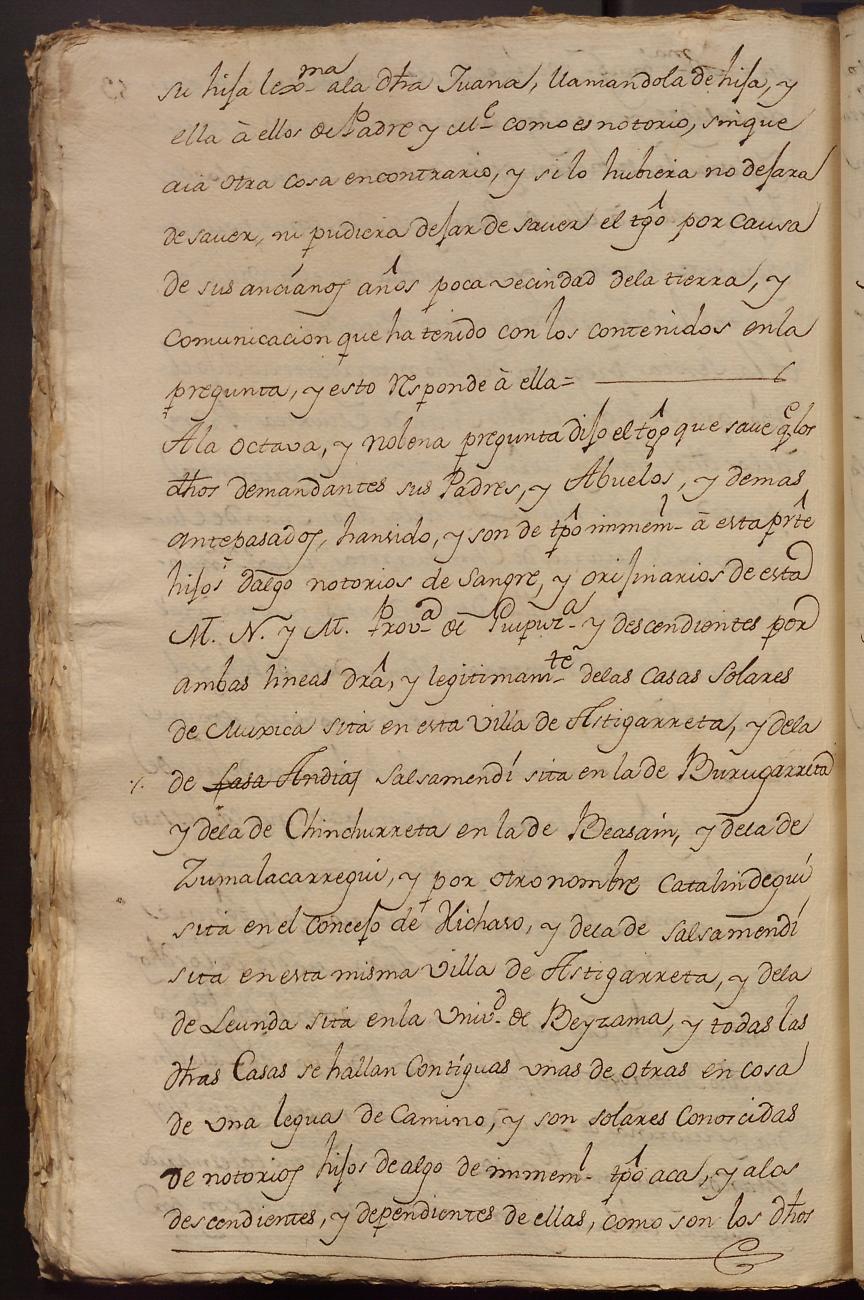 su hija lexma ala dha Juana, llamandola de hija, y
ella à ellos de Padre y Me como es notorio, sinque
aia otra cosa encontrario, y si lo hubiera no dejara
de saver, ni pudiera dejar de saver el tgo por causa
de sus ancianos años poca vecindad dela tierra, y
comunicacion que ha tenido con los contenidos enla
pregunta, y esto responde à ella=
Ala octava, y nobena pregunta dijo el tgo que save qe los
dhos demandantes sus Padres, y Abuelos, y demas
antepasados, hansido, y son de tpo immeml à esta prte
hijos dalgo notorios de sangre, y orijinarios de esta
M. N. y M. L. Prova de Guipuza y descendientes por
ambas lineas dra, y legitimamte delas casas solares
de Muxica sita en esta villa de Astigarreta, y dela
de Casa Andia salsamendi sita en la de Burugarreta
y dela de Chinchurreta en la de Beasain, y dela de
Zumalacarregui, y por otro nombre Catalindegui
sita en el concejo de Hichaso, y dela de salsamendi
sita en esta misma villa de Astigarreta, y dela
de Leunda sita enla Univd de Beyzama, y todas las
dhas Casas se hallan Contiguas unas de otras en cosa
de una legua de Camino, y son solares Conoscidas
de notorios hijos de algo de immeml tpo aca, y alos
descendientes, y dependientes de ellas, como son los dhos